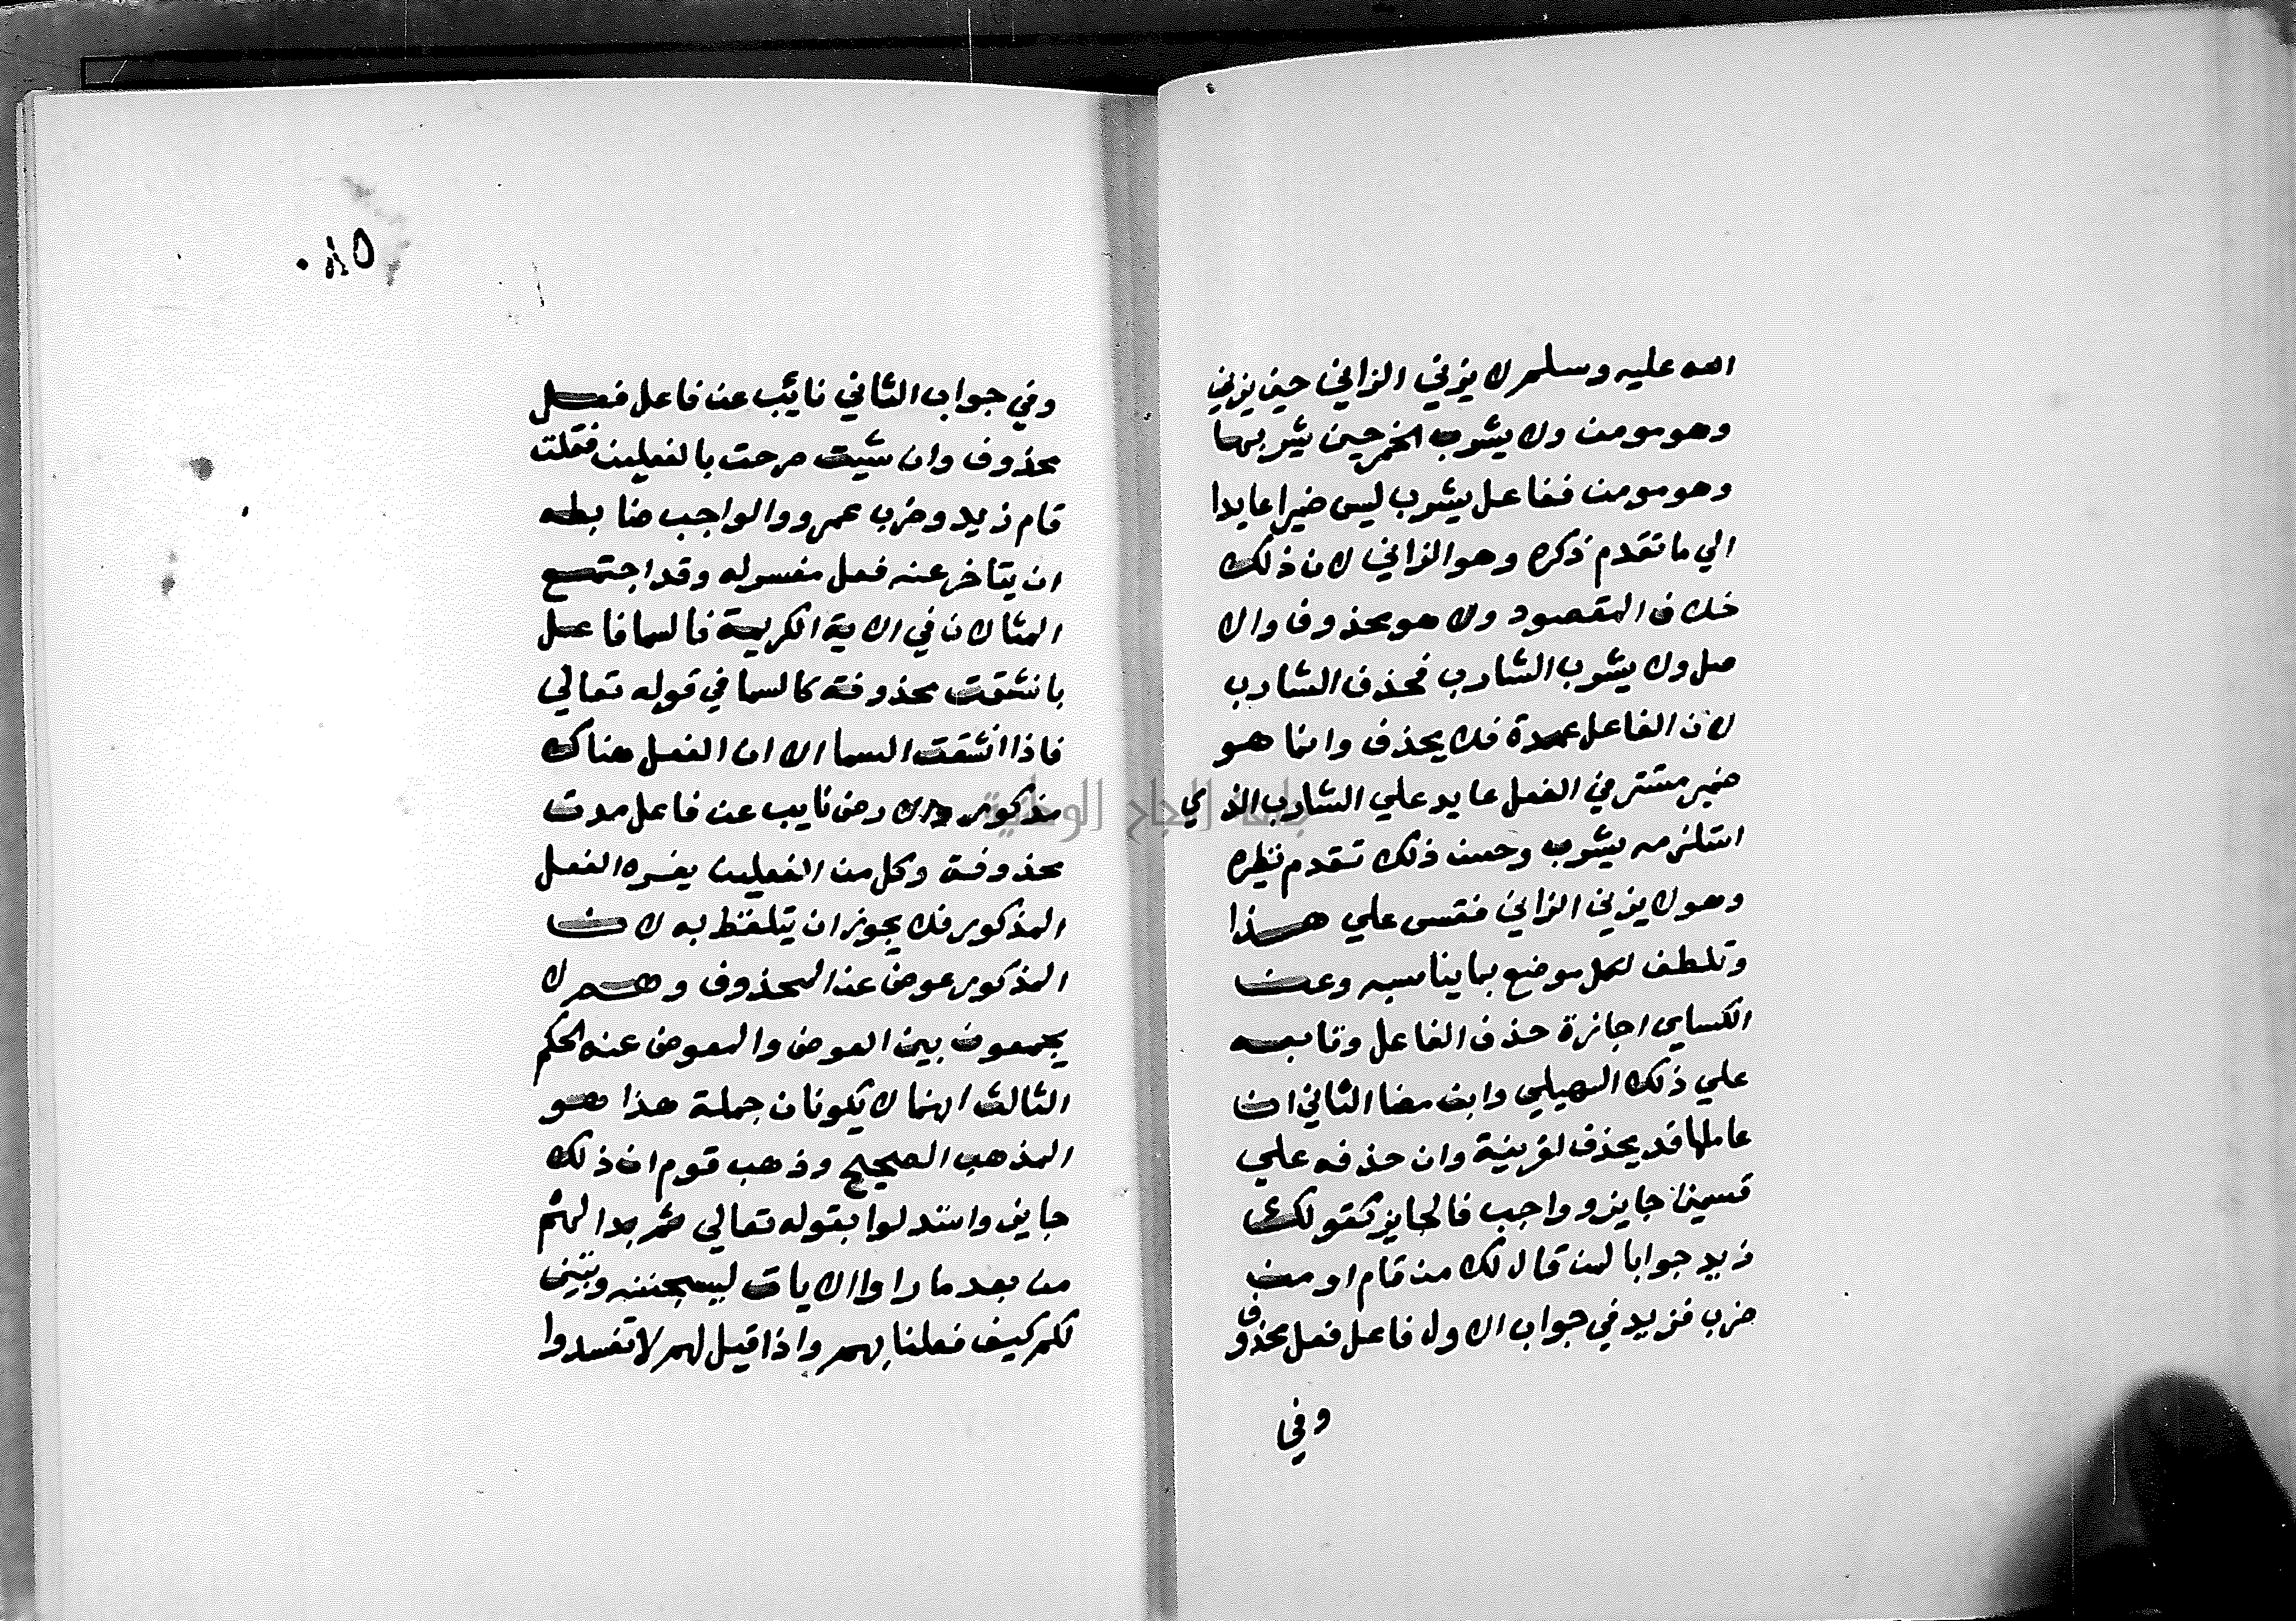 الله عليه وسلم لا يزني الزاني حين يزني
وهو مومن ولا يشرب الخمر حين يشربها
وهو مومن ففاعل يشرب ليس ضميرا عايدا
الي ما تقدم ذكره وهو الزاني لان ذلك
خلاف المقصود ولا هو محذوف والا
صل ولا يشرب الشارب فحذف الشارب
لان الفاعل عمدة فلا يحذف وانما هو
ضمير مستتر في الفعل عايد علي الشارب الذي
استلزمه يشرب وحسن ذلك تقدم نظيره
وهو لا يزني الزاني فقس علي هذا
وتلطف لكل موضع بما يناسبه وعن
الكساي اجازة حذف الفاعل وتابعه
علي ذلك السهيلي وابن مضا الثاني ان
عاملها قد يحذف لقرينة وان حذفه علي
قسمين جايز وواجب فالجايز كقولك
زيد جوابا لمن قال لك من قام او من
ضرب فزيد في جواب الاول فاعل فعل محذوف
وفي
وفي جواب الثاني نائب عن فاعل فعل
محذوف وان شيت صرحت بالفعلين فقلت
قام زيد وضرب عمرو والواجب ضابطه
ان يتاخر عنه فعل مفسر له وقد اجتمع
المثالان في الاية الكريمة فالسما فاعل
بانشقت محذوفة كالسما في قوله تعالي
فاذا انشقت السما الا ان الفعل هناك
مذكور والارض نايب عن فاعل مدت
محذوفة وكل من الفعلين يفسره الفعل
المذكور فلا يجوز ان يتلفظ به لان
المذكور عوض عن المحذوف وهم لا
يجمعون بين العوض والمعوض عنه الحكم
الثالث انهما لا يكونان جملة هذا هو
المذهب الصحيح وذهب قوم ان ذلك
جايز واستدلوا بقوله تعالي ثم بدا لهم
من بعد ما راوا الايات ليسجننه وتبين
لكم كيف فعلنا بهم واذا قيل لهم لا تفسدوا
جامعة النجاح الوطنية